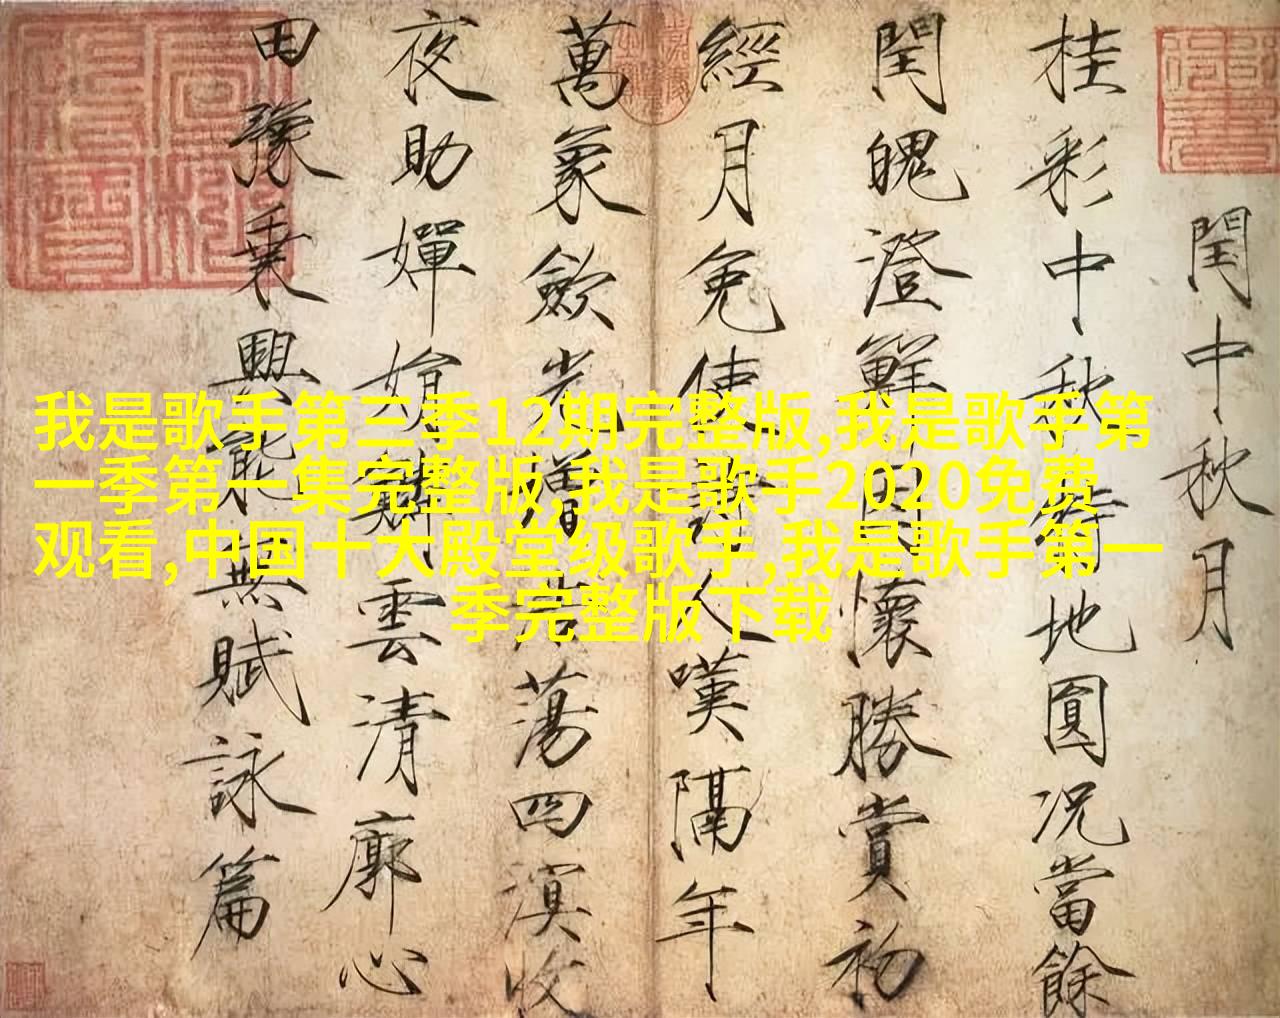 閏中秋月
桂彩中秋特地圓況當餘
閏魄澄鮮因懷勝賞初
經月免使詩人嘆隔年
萬象歛光增浩蕩四溟收
夜助嬋娟鱗雲清廓心
田豫乗興能無賦詠篇
我是歌手第三季12期完整版,我是歌手第
一季第一集完整版,我是歌手2020免费
观看,中国十大殿堂级歌手,我是歌手第一
季完整版下载